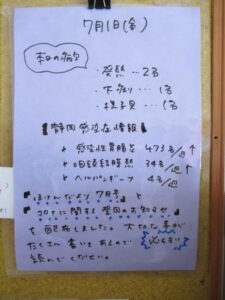 7月1日(金)
本日の病欠
・発熱…2名
・下痢…1名
・様子見…1名
【静岡感染症情報】
・感染性胃腸炎 473名/週↑
・咽頭結膜熱 34名/週↑
・ヘルパンギーナ 4名/週
【ほけんだより 7月号】と
【コロナに関する登園のお知らせ】
を配布しました。大切な事が
たくさん書いてあるので 必らず!
読んで下さい。